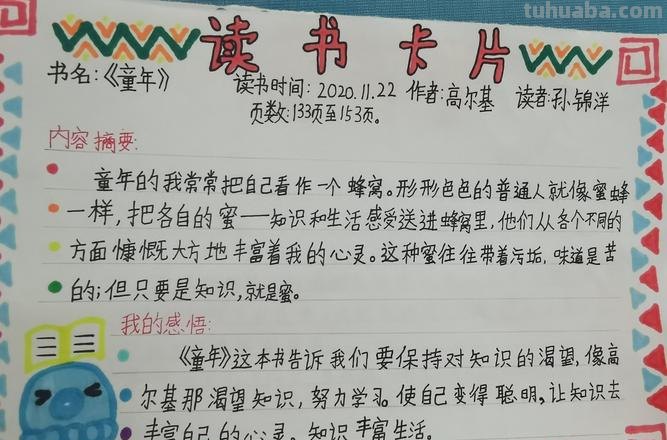 tuhuaba.com
读书卡片
书名:《童年》 读书时间: 2020.11.22 作者:高尔基 读者:孙锦洋
页数:133页至153页。
内容摘要:
童年的我常常把自己看作一个蜂窝。形形色色的普通人就像蜜蜂
一样,把各自的蜜——知识和生活感受送进蜂窝里,他们从各个不同的
方面慷慨大方地丰富着我的心灵。这种蜜往往带着污垢,味道是苦
的;但只要是知识,就是蜜。
我的感悟:
《童年》这本书告诉我们要保持对知识的渴望,像高
尔基那渴望知识,努力学习。使自己变得聪明,让知识去
丰富自己的心灵。知识丰富生活。